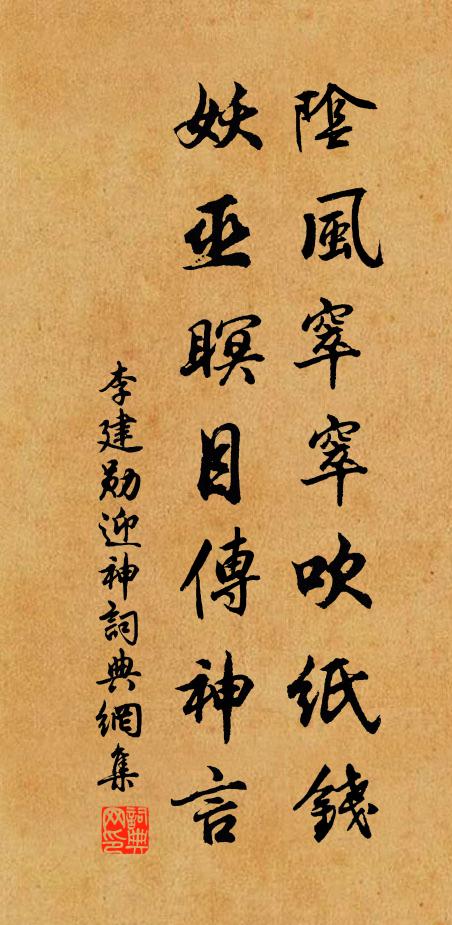 陰風窣窣吹紙錢
妖巫瞑目傳神言
李建勋迎神詞典網集
詞典
网印